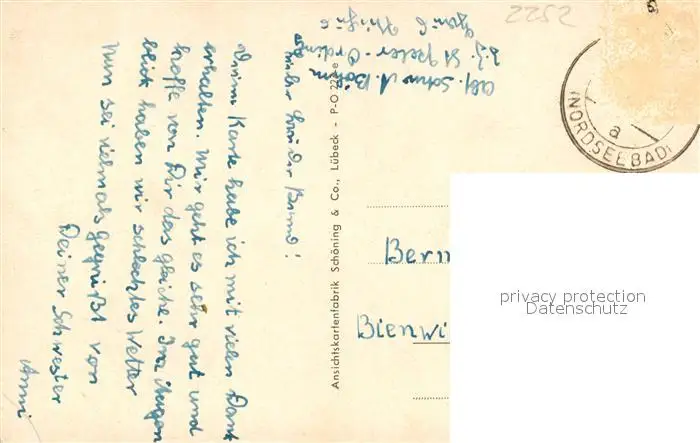 2252
Abs. Schw. A. Böhm
z.Z. St. Peter-Ording
Haus
Lieber Bruder Bernd!
Deine Karte habe ich mit vielen Dank
erhalten. Mir geht es sehr gut und
hoffe von Dir das gleiche. Im Augen
blick haben wir schlechtes Wetter
Nun sei vielmals gegrüßt von
Deiner Schwester
Anni
Ansichtskartenfabrik Schöning & Co., Lübeck - P-O
a
(NORDSEEBAD)
Bern
Bienwi
privacy protection
Datenschutz